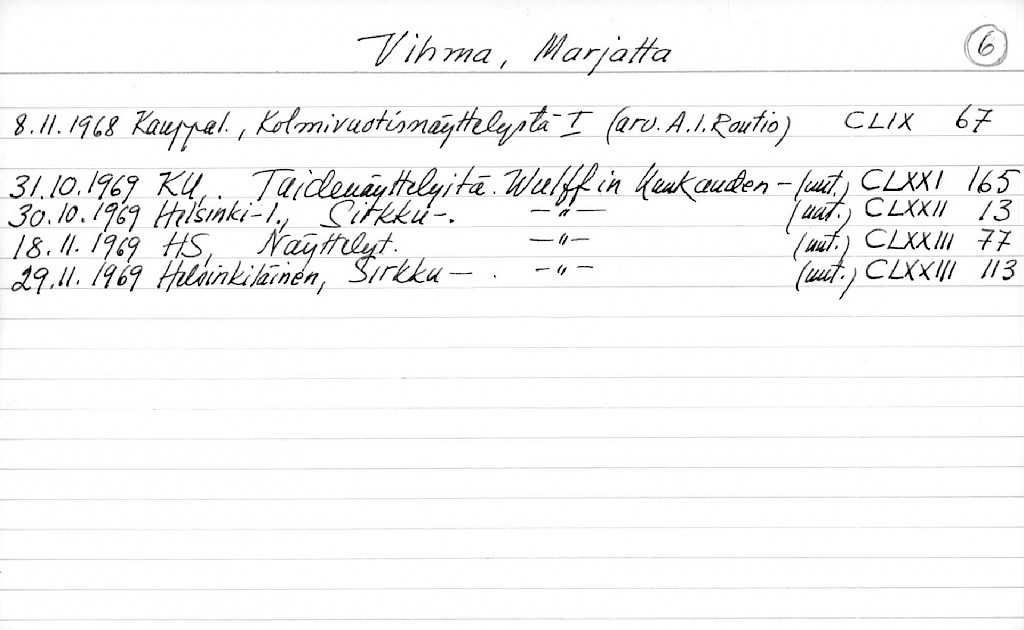 Vihma, Marjatta 6
8.11.1968 Kauppal., Kolmivuotisnäyttelystä I (arv. A.I. Routio) CLIX 67
31.10.1969 KU, Taidenäyttelyitä. Wulff in kuukauden - (uut.) CLXXI 165
30.10.1969 Helsinki-l., Sirkku-. —"— (uut.) CLXXII 13
18.11.1969 HS, Näyttelyt. —"— (uut.) CLXXIII 77
29.11.1969 Helsinkiläinen, Sirkku—. —"— (uut.) CLXXIII 113